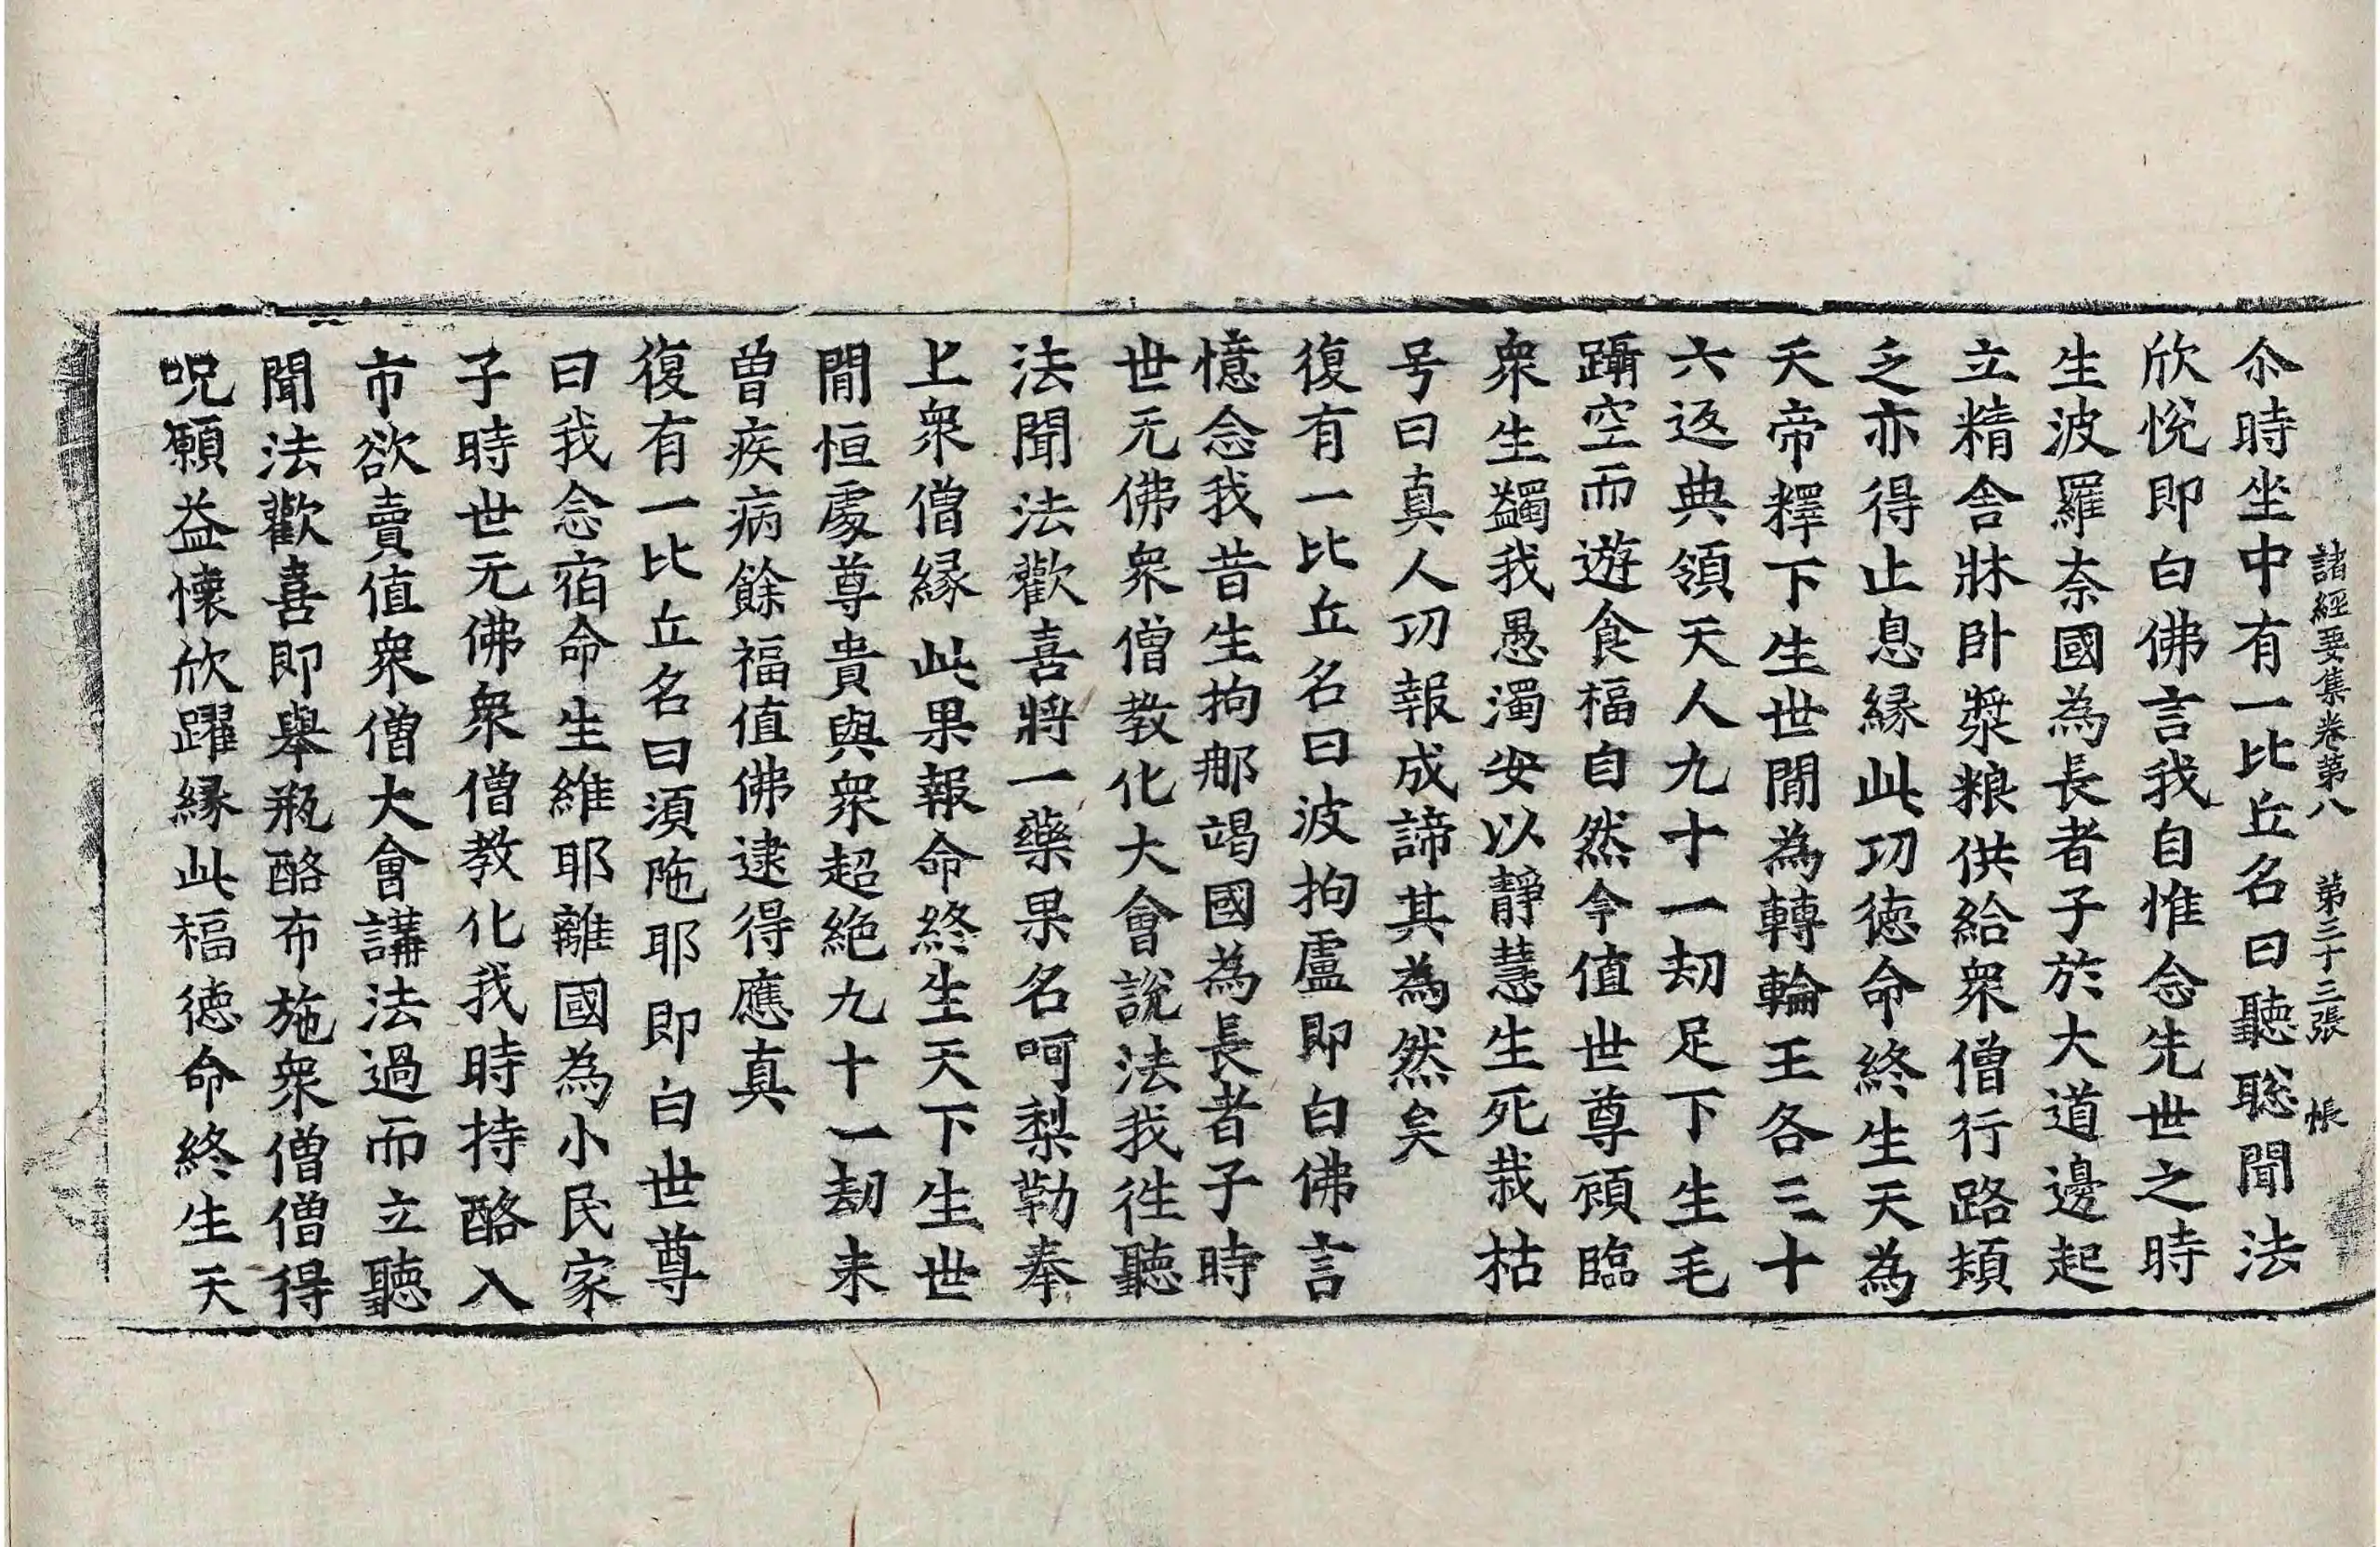 諸經要集卷第八 第三十三張 帳
尒時坐中有一比丘名曰聽聡聞法
欣悅即白佛言我自惟念先世之時
生波羅奈國為長者子於大道邊起
立精舍牀卧漿粮供給衆僧行路頓
乏亦得止息縁此功徳命終生天為
天帝釋下生世閒為轉輪王各三十
六返典領天人九十一劫足下生毛
躡空而遊食福自然今值世尊頋臨
衆生蠲我愚濁安以靜慧生死栽枯
号曰真人功報成諦其為然矣
復有一比丘名曰波拘盧即白佛言
憶念我昔生拘那竭國為長者子時
世无佛衆僧教化大會說法我徃聽
法聞法歡喜將一藥果名呵梨勒奉
上衆僧縁此果報命終生天下生世
閒恒處尊貴與衆超絶九十一劫未
曽疾病餘福值佛逮得應真
復有一比丘名曰湏陁耶即白世尊
曰我念宿命生維耶離國為小民家
子時世无佛衆僧教化我時持酪入
市欲賣值衆僧大會講法過而立聽
聞法歡喜即舉瓶酪布施衆僧僧得
呪願益懐欣躍縁此福徳命終生天